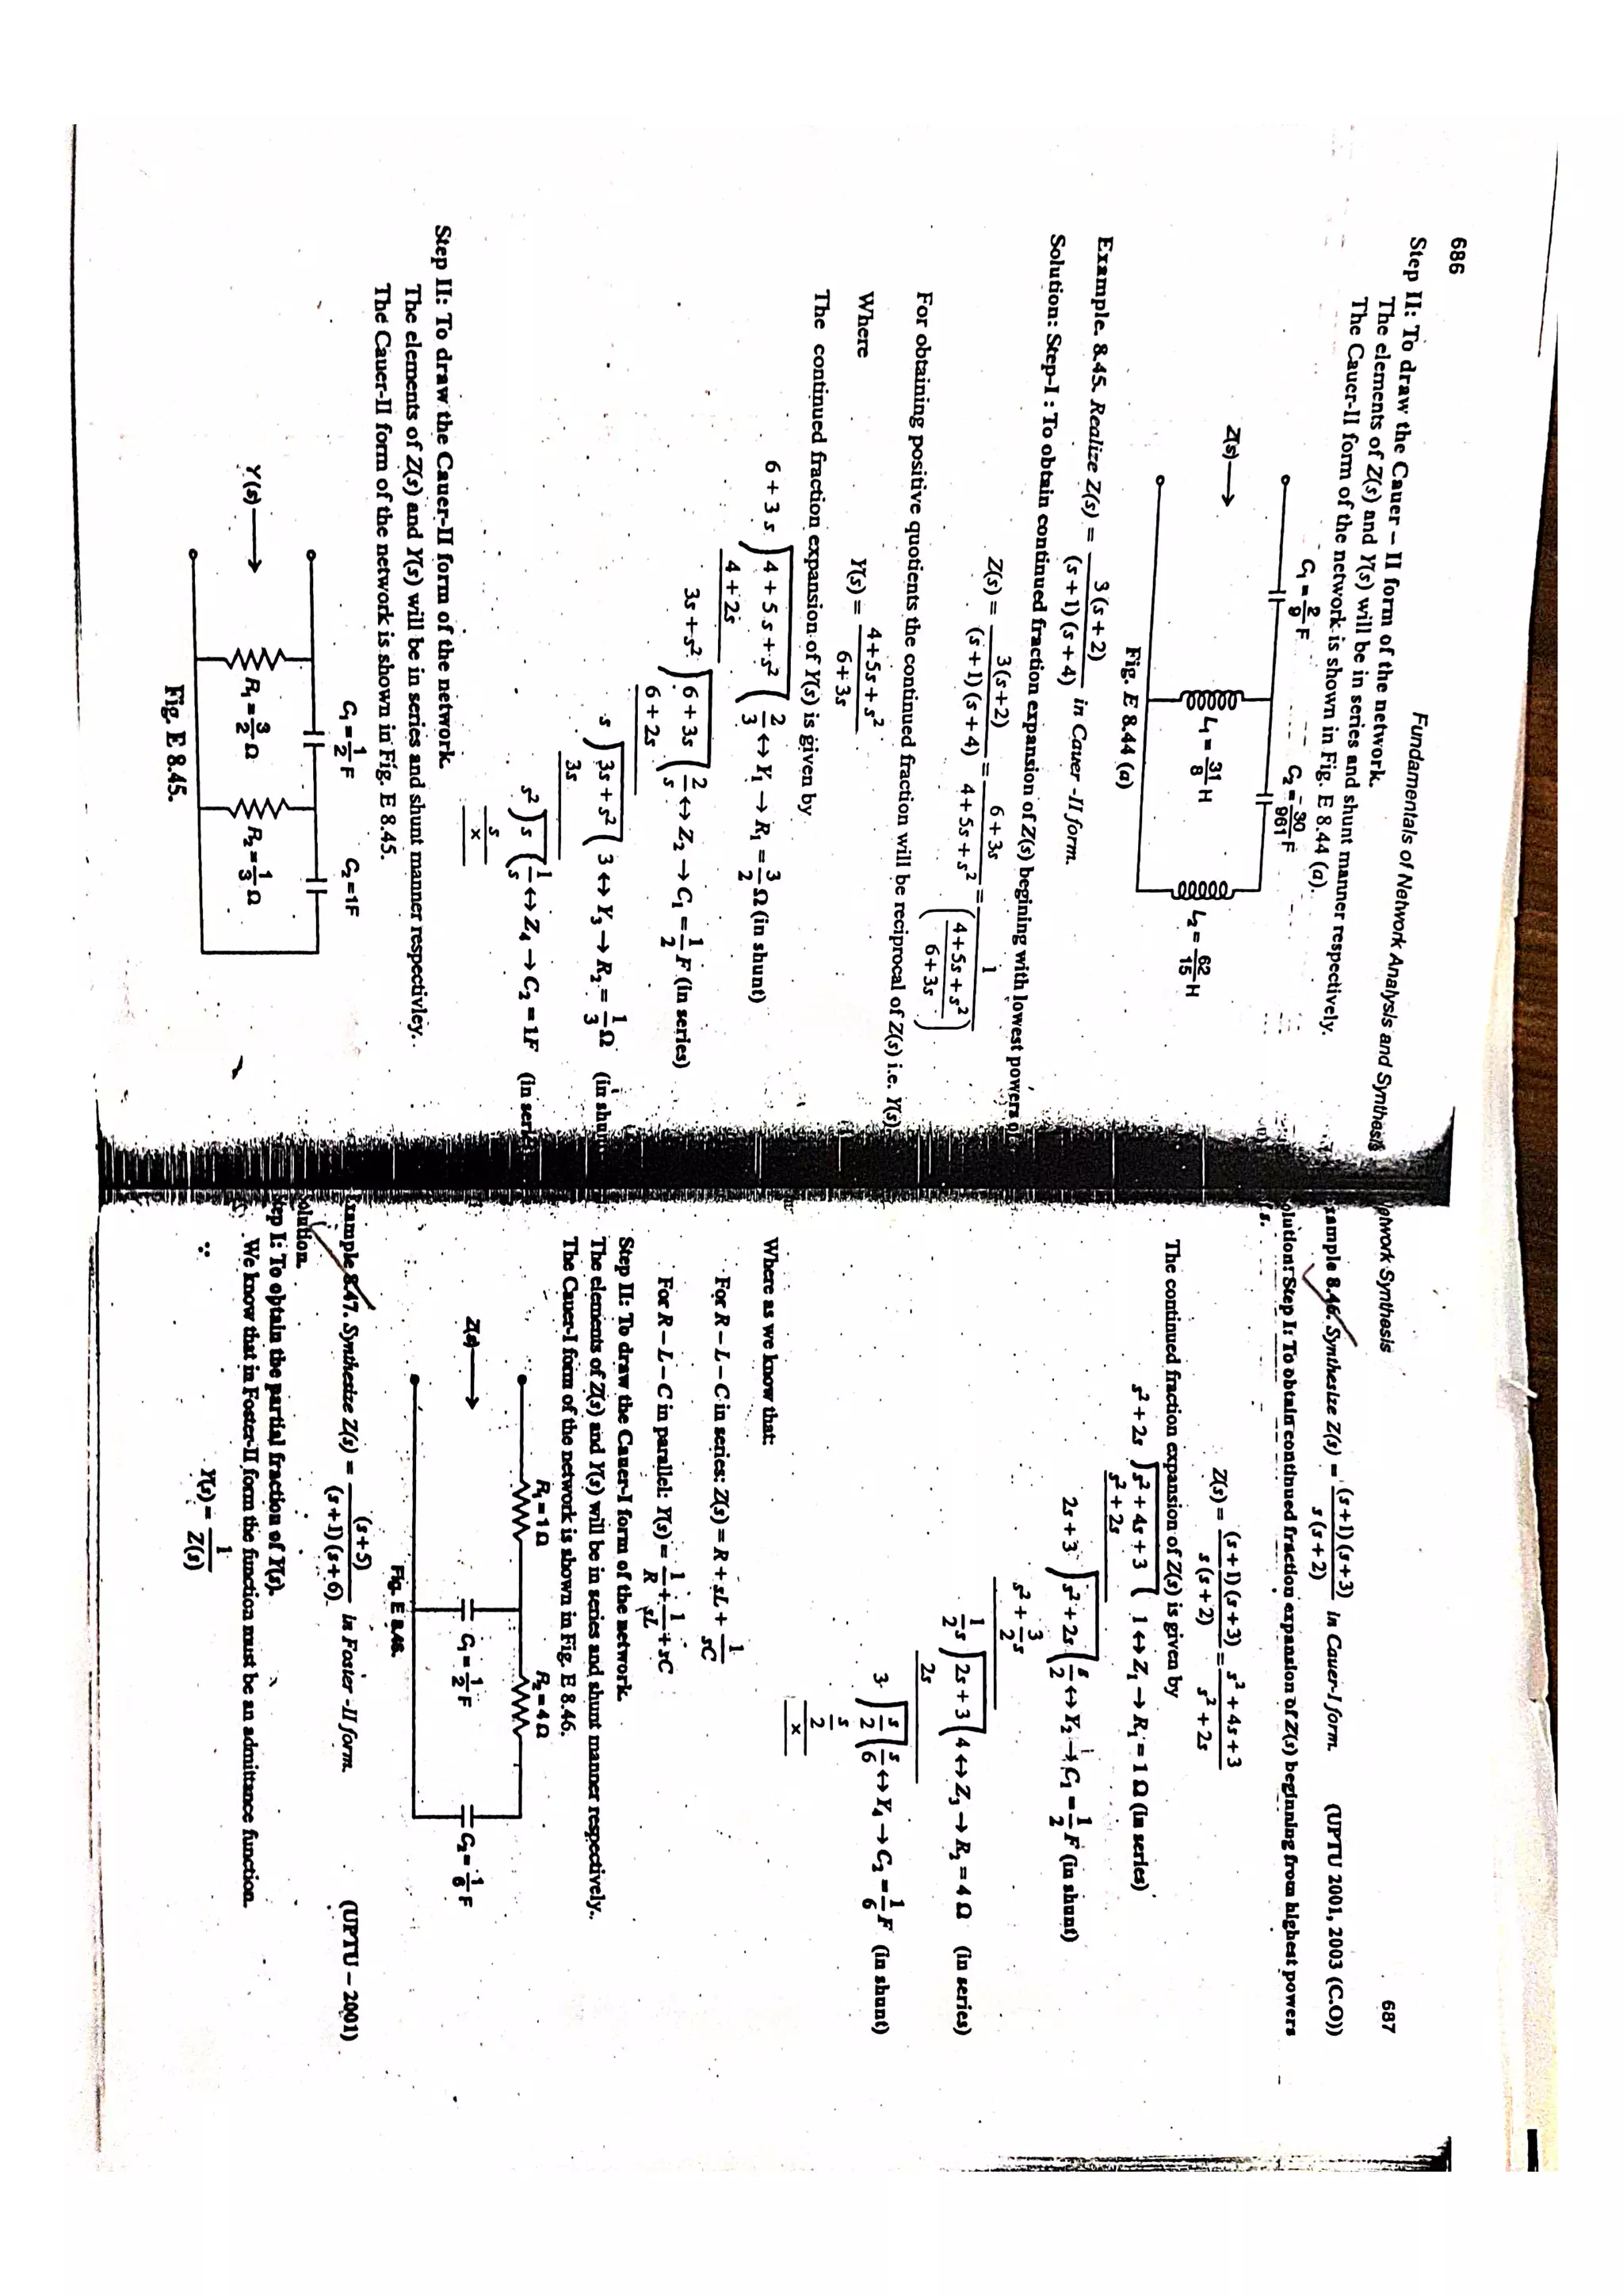 686
Fundamentals of Network Analysis and Synthesis
Step II: To draw the Cauer – II form of the network.
The elements of Z(s) and Y(s) will be in series and shunt manner respectively.
The Cauer-II form of the network is shown in Fig. E 8.44 (a).
C₁ = 2/9 F C₂ = 30/961 F
Z(s) →
L₁ = 31/8 H L₂ = 62/15 H
Fig. E 8.44 (a)
Example. 8.45. Realize Z(s) = 3(s+2) / (s+1)(s+4) in Cauer -II form.
Solution: Step-I : To obtain continued fraction expansion of Z(s) begining with lowest powers of
Z(s) = 3(s+2) / (s+1)(s+4) = 6+3s / 4+5s+s² = 1 / (4+5s+s² / 6+3s)
For obtaining positive quotients the continued fraction will be reciprocal of Z(s) i.e. Y(s).
Where Y(s) = 4+5s+s² / 6+3s
The continued fraction expansion of Y(s) is given by
6 + 3 s ) 4 + 5 s + s² ( 2/3 ↔ Y₁ → R₁ = 3/2 Ω (in shunt)
4 + 2s
3s + s² ) 6 + 3s ( 2/s ↔ Z₂ → C₁ = 1/2 F (in series)
6 + 2s
s ) 3s + s² ( 3 ↔ Y₃ → R₂ = 1/3 Ω (in shun
3s
s² ) s ( 1/s ↔ Z₄ → C₂ = 1F (in seri
s
x
Step II: To draw the Cauer-II form of the network.
The elements of Z(s) and Y(s) will be in series and shunt manner respectivley.
The Cauer-II form of the network is shown in Fig. E 8.45.
C₁ = 1/2 F C₂=1F
Y(s) →
R₁ = 3/2 Ω R₂ = 1/3 Ω
Fig. E 8.45.
etwork Synthesis 687
xample 8.46. Synthesize Z(s) = (s+1)(s+3) / s(s+2) in Cauer-I form. (UPTU 2001, 2003 (C.O))
olution: Step I: To obtain continued fraction expansion of Z(s) beginning from highest powers
s.
Z(s) = (s+1)(s+3) / s(s+2) = s²+4s+3 / s²+2s
The continued fraction expansion of Z(s) is given by
s² + 2s ) s² + 4s + 3 ( 1 ↔ Z₁ → R₁ = 1 Ω (in series)
s² + 2s
2s + 3 ) s² + 2s ( s/2 ↔ Y₂ → C₁ = 1/2 F (in shunt)
s² + 3/2 s
1/2 s ) 2s + 3 ( 4 ↔ Z₃ → R₂ = 4 Ω (in series)
2s
3 ) s/2 ( s/6 ↔ Y₄ → C₂ = 1/6 F (in shunt)
s/2
x
Where as we know that:
For R – L – C in series: Z(s) = R + sL + 1/sC
For R – L – C in parallel: Y(s) = 1/R + 1/sL + sC
Step II: To draw the Cauer-I form of the network.
The elements of Z(s) and Y(s) will be in series and shunt manner respectively.
The Cauer-I form of the network is shown in Fig. E 8.46.
R₁=1Ω R₂=4Ω
Z(s) →
C₁ = 1/2 F C₂ = 1/6 F
Fig. E 8.46.
xample 8.47. Synthesize Z(s) = (s+5) / (s+1)(s+6) in Foster -II form. (UPTU – 2001)
olution.
tep I: To obtain the partial fraction of Y(s).
We know that in Foster-II form the function must be an admittance function.
∵ Y(s) = 1 / Z(s)